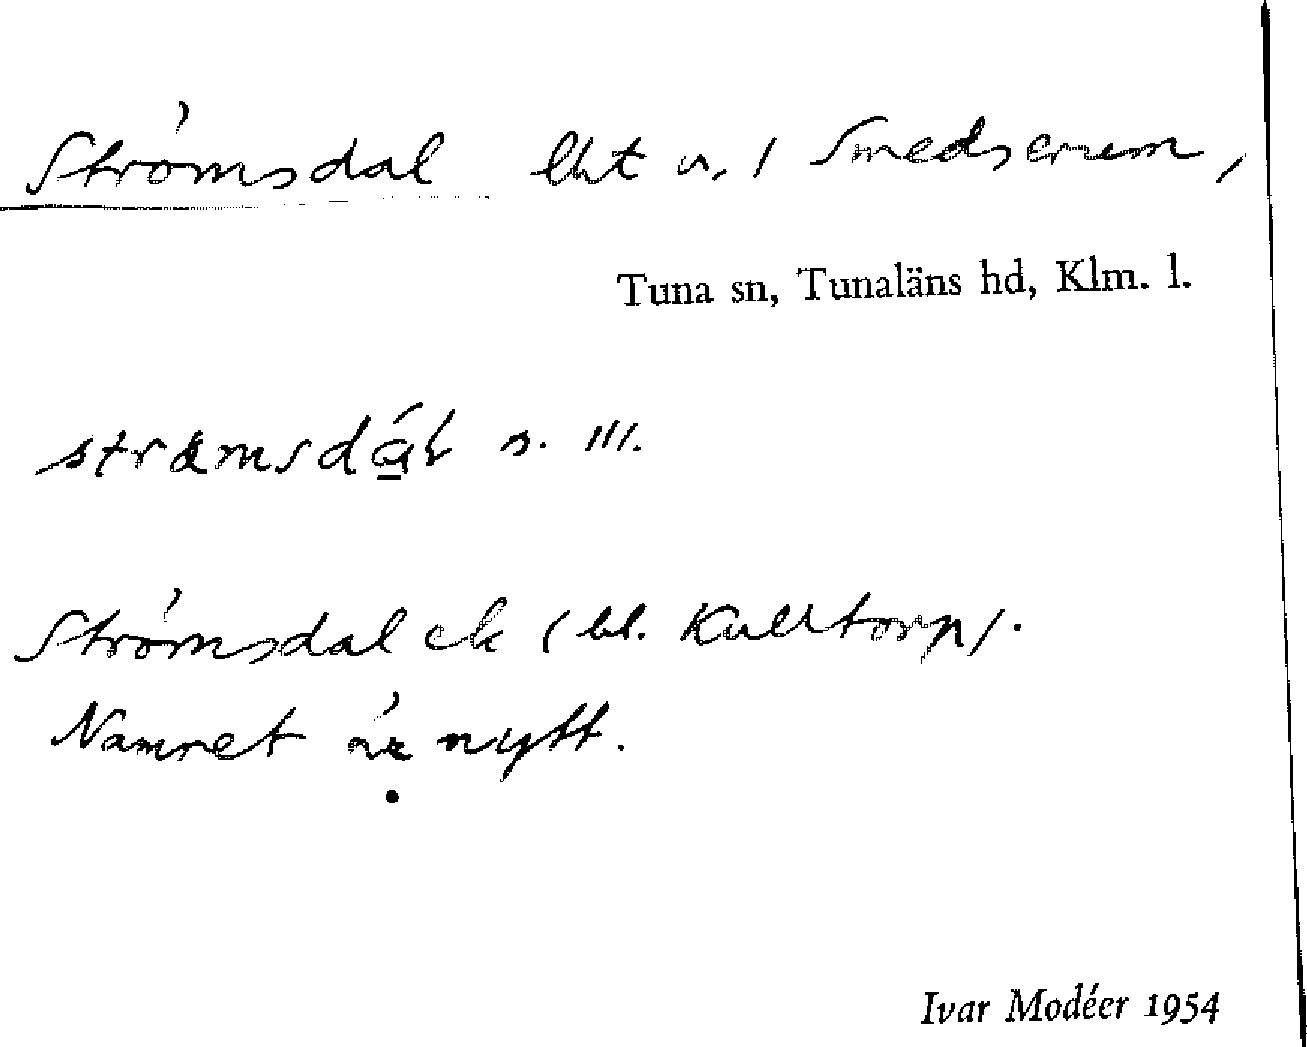 Strömsdal lht u. / Smedserum,
Tuna sn, Tunaläns hd, Klm. l.
n. III.
Strömsdal ek (bl. Kulltorp).
Namnet är nytt.
Ivar Modéer 1954